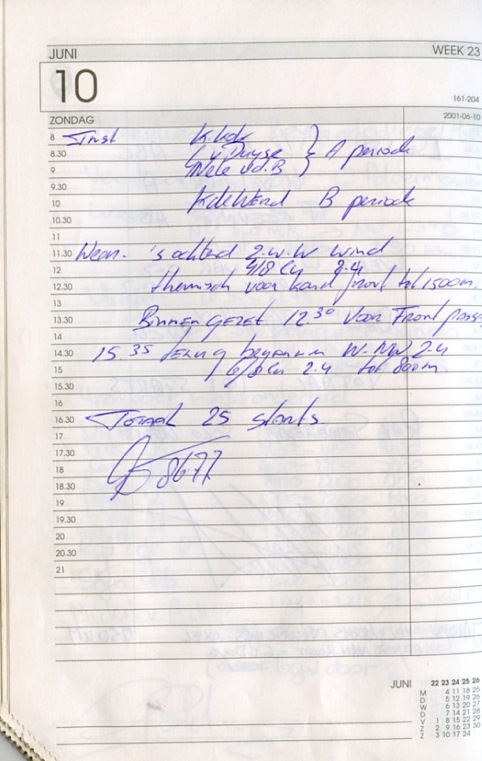 JUNI WEEK 23
10
161-204
ZONDAG 2001-06-10
8 Inst K. Kok
8.30 A periode
9 v.d. B
9.30
10 K de Wend B periode
10.30
11
11.30 Weer. 's ochtend Z.W-W wind
12 4/8 Cu 3-4
12.30 thermisch voor koud front tot 1500m.
13
13.30 Binnen gezet 12 30 voor Front
14
14.30 15.35 terug begonnen W-NW 2-4
15 6/8 Cu 2-4 tot 800m
15.30
16
16.30 Totaal 25 starts.
17
17.30
18 8677
18.30
19
19.30
20
20.30
21
JUNI 22 23 24 25 26
M 4 11 18 25
D 5 12 19 26
W 6 13 20 27
D 7 14 21 28
V 1 8 15 22 29
Z 2 9 16 23 30
Z 3 10 17 24